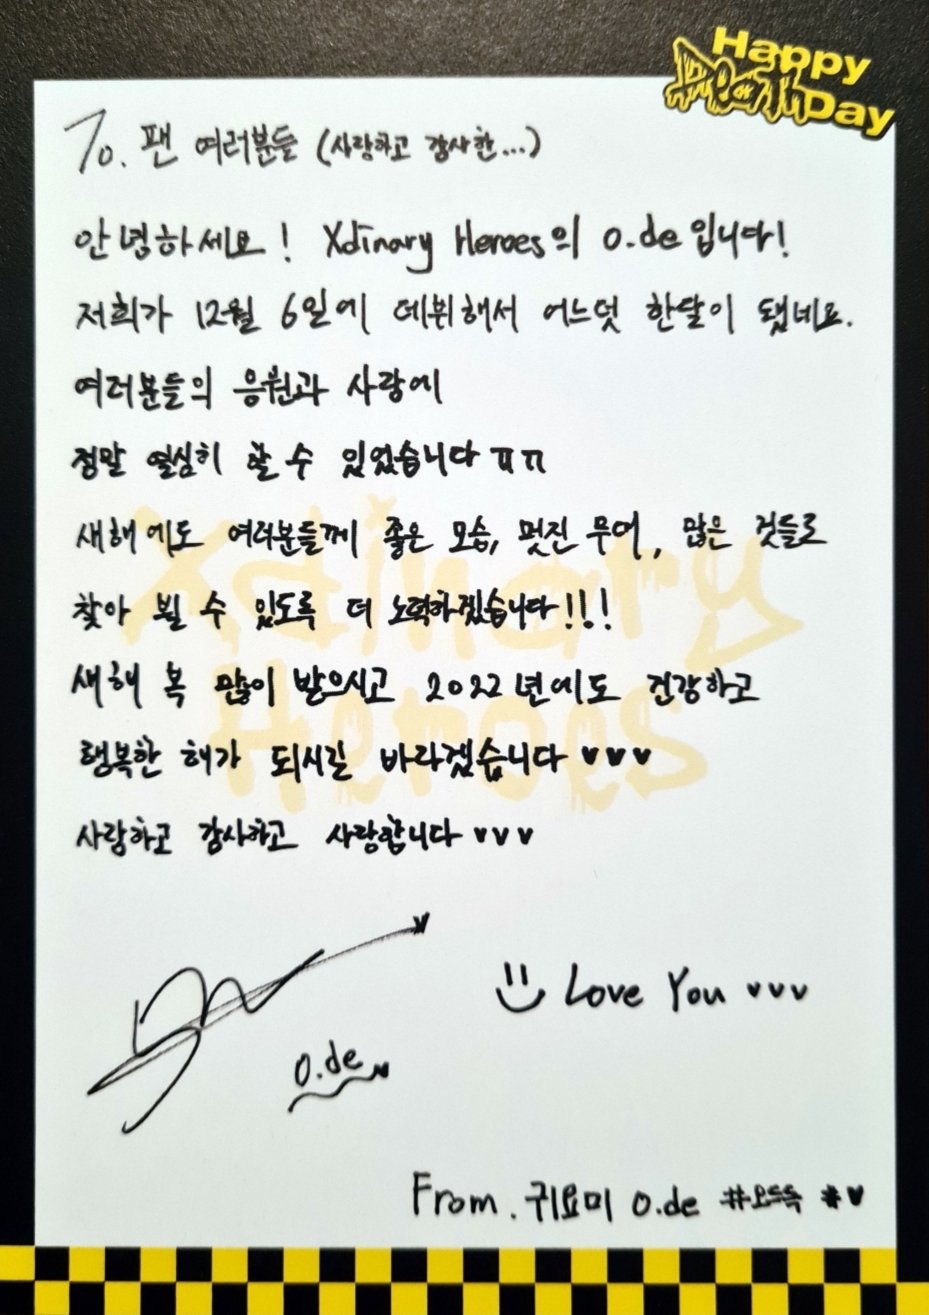 Happy
Death Day
To. 팬 여러분들 (사랑하고 감사한...)
안녕하세요! Xdinary Heroes의 O.de입니다!
저희가 12월 6일에 데뷔해서 어느덧 한달이 됐네요.
여러분들의 응원과 사랑에
정말 열심히 할 수 있었습니다 ㅠㅠ
새해에도 여러분들께 좋은 모습, 멋진 무대, 많은 것들로
찾아 뵐 수 있도록 더 노력하겠습니다!!!
새해 복 많이 받으시고 2022년에도 건강하고
행복한 해가 되시길 바라겠습니다 ♥♥♥
사랑하고 감사하고 사랑합니다 ♥♥♥
Xdinary
Heroes
Love You ♥♥♥
O.de
From. 귀요미 O.de #오뜩 ♥